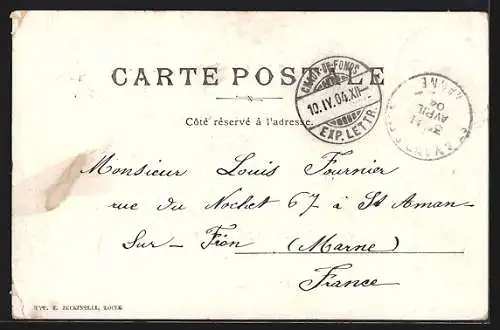 CARTE POSTALE
CHAUX-DE-FONDS
10.IV.04.XII-
EXP. LETTR.
3E 11
AVRIL
04
MARNE
Côté réservé à l'adresse.
Monsieur Louis Fournier
rue du Nochet 67 à St Aman-
Sur-Fion (Marne)
France